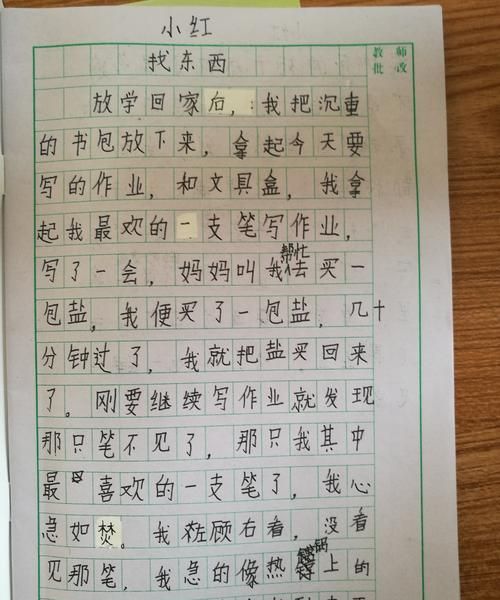 小红
找东西
教师
批改
放学回家后，我把沉重
的书包放下来，拿起今天要
写的作业，和文具盒，我拿
起我最欢的一支笔写作业，
写了一会，妈妈叫我帮忙去买一
包盐，我便买了一包盐，几十
分钟过了，我就把盐买回来
了。刚要继续写作业就发现
那只笔不见了，那只我其中
最喜欢的一支笔了，我心
急如焚。我左顾右看，没看
见那笔，我急的像热锅上的